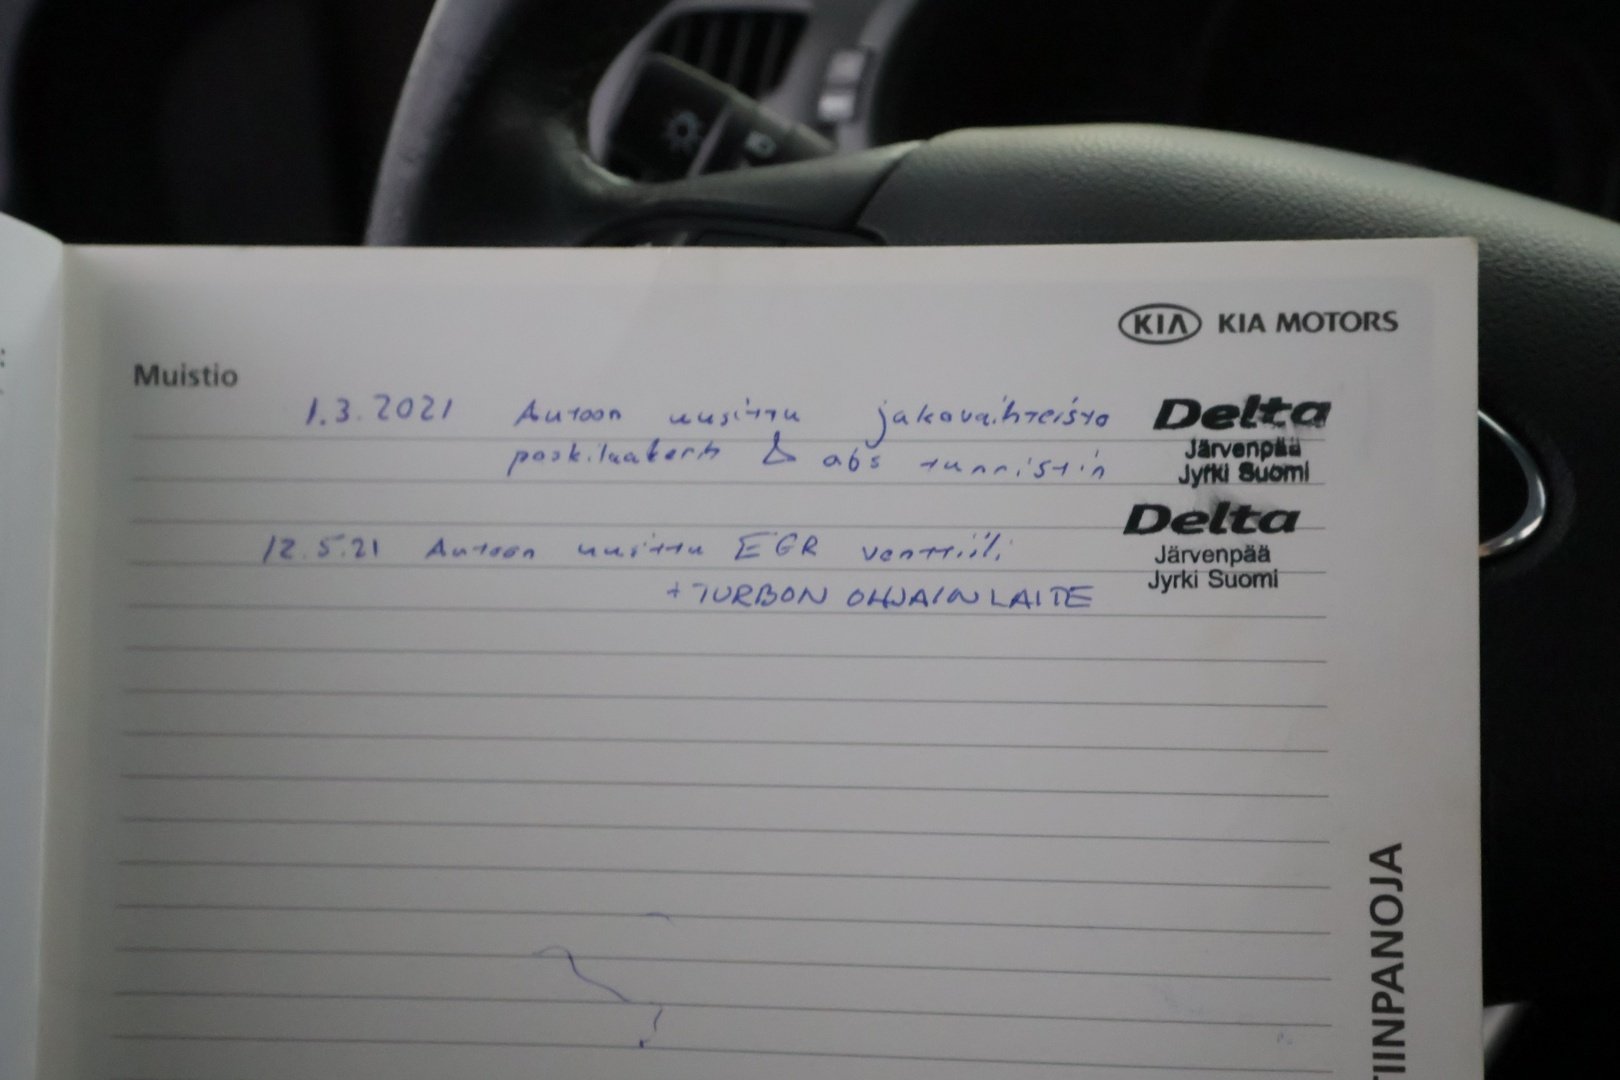 KIA KIA MOTORS
Muistio
1.3.2021 Autoon uusittu jakovaihteisto Delta
Järvenpää
poskilaakerit & abs tunnistin Jyrki Suomi
Delta
12.5.21 Autoon uusittu EGR venttiili Järvenpää
Jyrki Suomi
+ TURBON OHJAINLAITE
TIINPANOJA